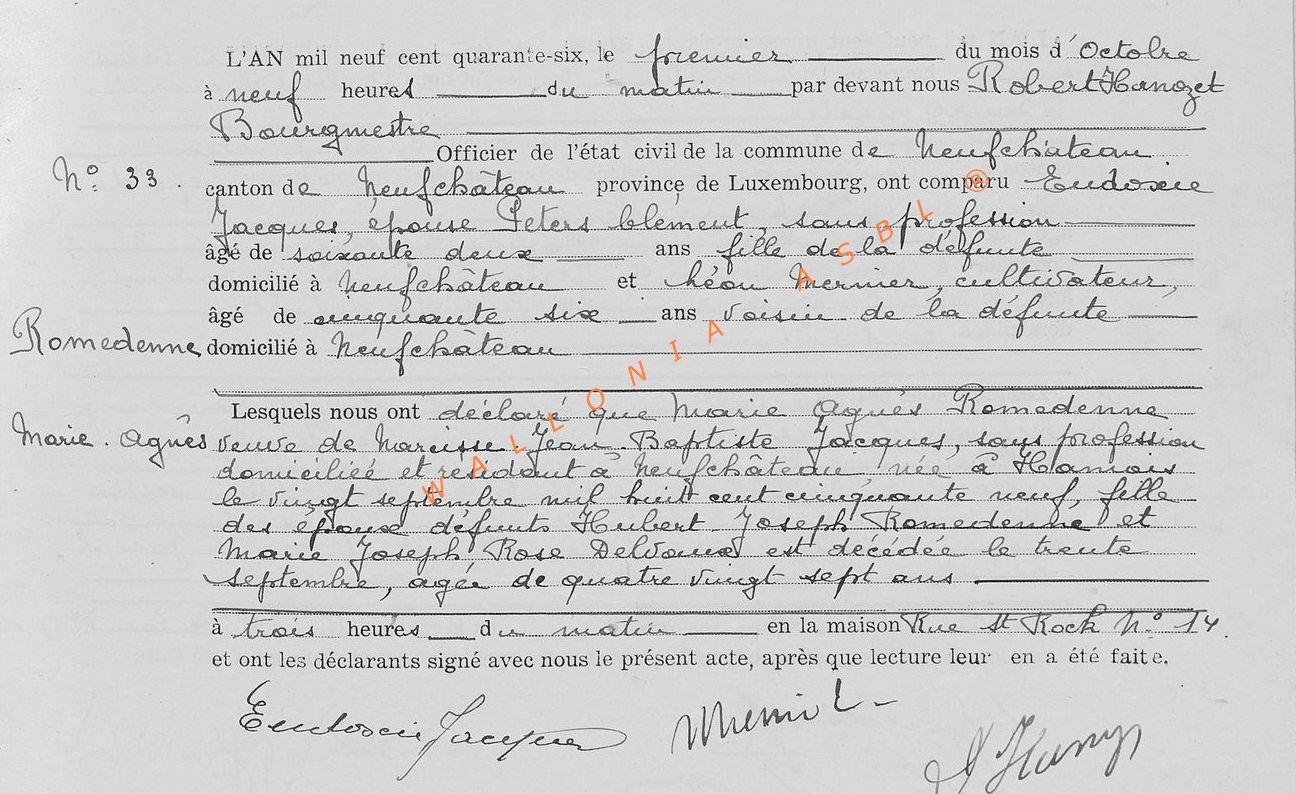 L'AN mil neuf cent quarante-six, le premier du mois d'Octobre
à neuf heures du matin par devant nous Robert Hanozet
Bourgmestre
Officier de l'état civil de la commune de Neufchâteau
N° 33.
canton de Neufchâteau province de Luxembourg, ont comparu Eudoxie
Jacques, épouse Peters Clément, sans profession
âgé de soixante deux ans fille de la défunte
domicilié à Neufchâteau et Léon Mernier, cultivateur,
âgé de cinquante six ans voisin de la défunte
Romedenne
domicilié à Neufchâteau
Lesquels nous ont déclaré que Marie Agnès Romedenne
Marie. Agnès
veuve de Narcisse Jean Baptiste Jacques, sans profession
domiciliée et résidant à Neufchâteau née à Hamois
le vingt septembre mil huit cent cinquante neuf, fille
des époux défunts Hubert Joseph Romedenne et
Marie Joseph Rose Delvaux est décédée le trente
septembre, agée de quatre vingt sept ans
à trois heures du matin en la maison Rue St Roch N° 14.
et ont les déclarants signé avec nous le présent acte, après que lecture leur en a été faite.
Eudoxie Jacques
WALLONIA ASBL ®